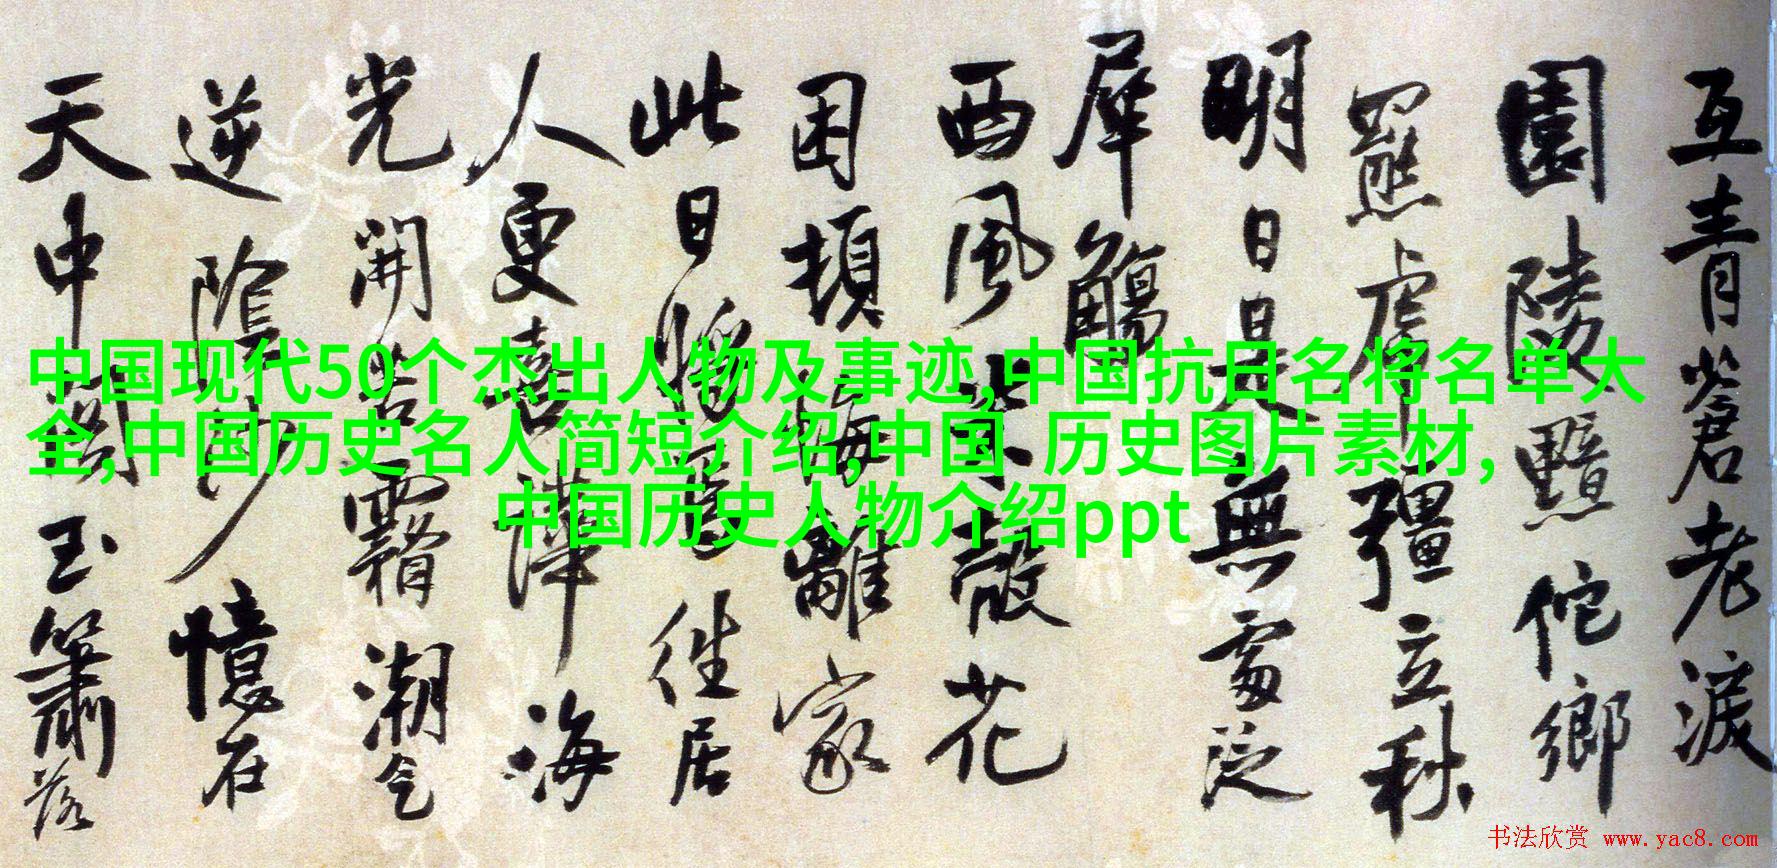 互青蒼老淚
園陵黯佗鄉
羆虎彊立秋
明日是無處泛
犀觴
西風花
困頓悔離家
此日往居
人更喜海
光開潮
逆陰憶在
天中閣玉簫落
中国现代50个杰出人物及事迹,中国抗日名将名单大
全,中国历史名人简短介绍,中国 历史图片素材,
中国历史人物介绍ppt
书法欣赏 www.yac8.com